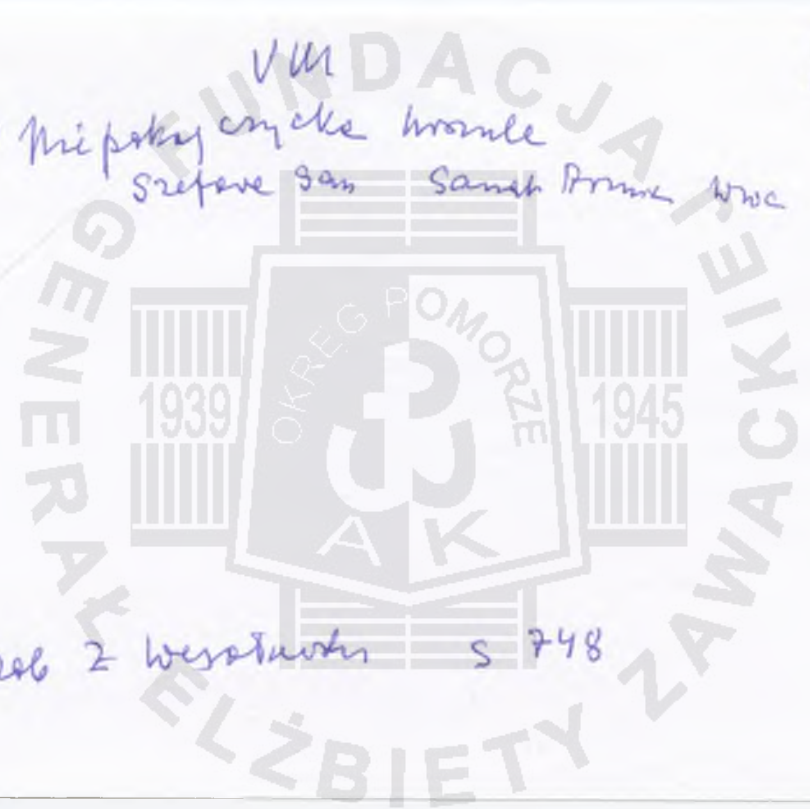 VIII
Niepokojczycka Urszula
Szefowa San Sanit Wwa
Z Wesołowski s 748
FUNDACJA GENERAŁ ELŻBIETY ZAWACKIEJ
OKRĘG POMORZE
1939 1945
AK